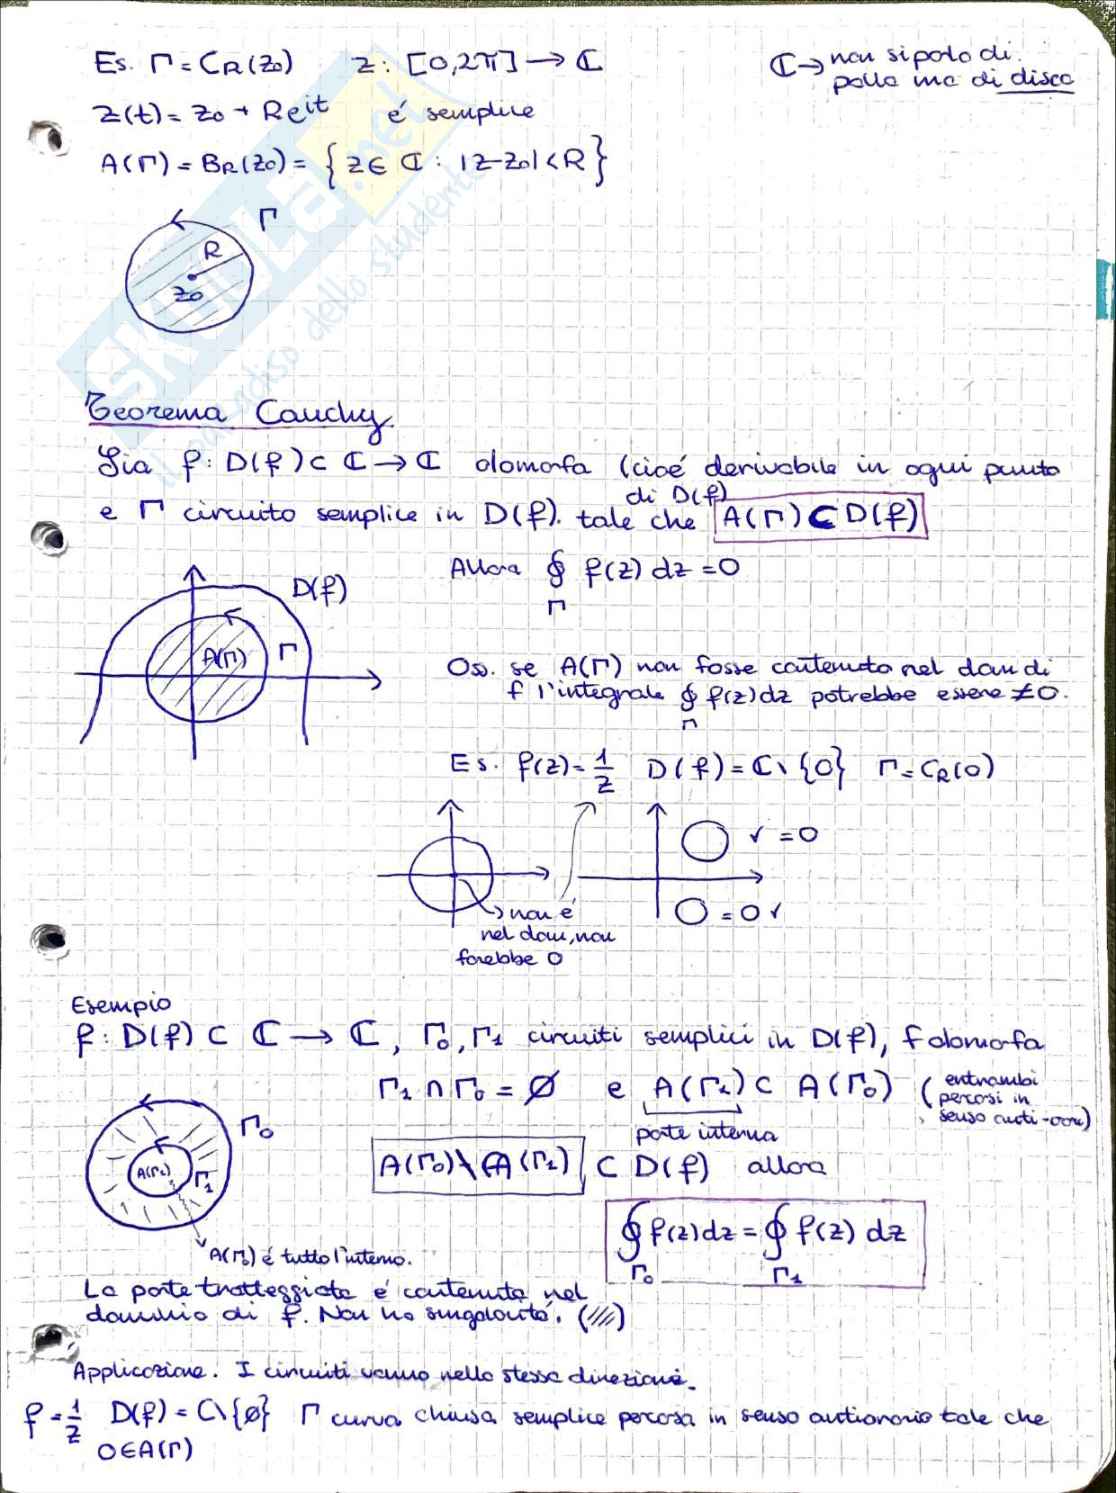 Es. Γ = C_R(z₀)   z: [0,2π] → ℂ
ℂ → non si parla di
palla ma di disco
z(t) = z₀ + Re^{it}   é semplice
A(Γ) = B_R(z₀) = { z ∈ ℂ : |z-z₀| < R }
Γ
R
z₀
SKUOLA.net
il paradiso dello studente
Teorema Cauchy.
Sia f: D(f) ⊂ ℂ → ℂ olomorfa (cioé derivabile in ogni punto
di D(f)
e Γ circuito semplice in D(f). tale che A(Γ) ⊂ D(f)
Allora ∮_Γ f(z) dz = 0
D(f)
A(Γ)
Γ
Oss. se A(Γ) non fosse contenuto nel dom di
f l'integrale ∮_Γ f(z) dz potrebbe essere ≠ 0.
Es. f(z) = 1/z   D(f) = ℂ \ {0}   Γ = C_R(0)
✓ = 0
= 0 ✓
non é
nel dom, non
farebbe 0
Esempio
f: D(f) ⊂ ℂ → ℂ, Γ₀, Γ₁ circuiti semplici in D(f), f olomorfa
Γ₁ ∩ Γ₀ = ∅   e   A(Γ₁) ⊂ A(Γ₀)   (entrambi
percorsi in
senso anti-orar)
parte interna
Γ₀
A(Γ₁)
Γ₁
A(Γ₀) \ A(Γ₁) ⊂ D(f)   allora
∮_{Γ₀} f(z) dz = ∮_{Γ₁} f(z) dz
A(Γ₀) é tutto l'interno.
La parte tratteggiata é contenuta nel
dominio di f. Non ha singolarità. (///)
Applicazione. I circuiti vanno nella stessa direzione.
f = 1/z   D(f) = C\{∅}   Γ curva chiusa semplice percorsa in senso antiorario tale che
0 ∈ A(Γ)